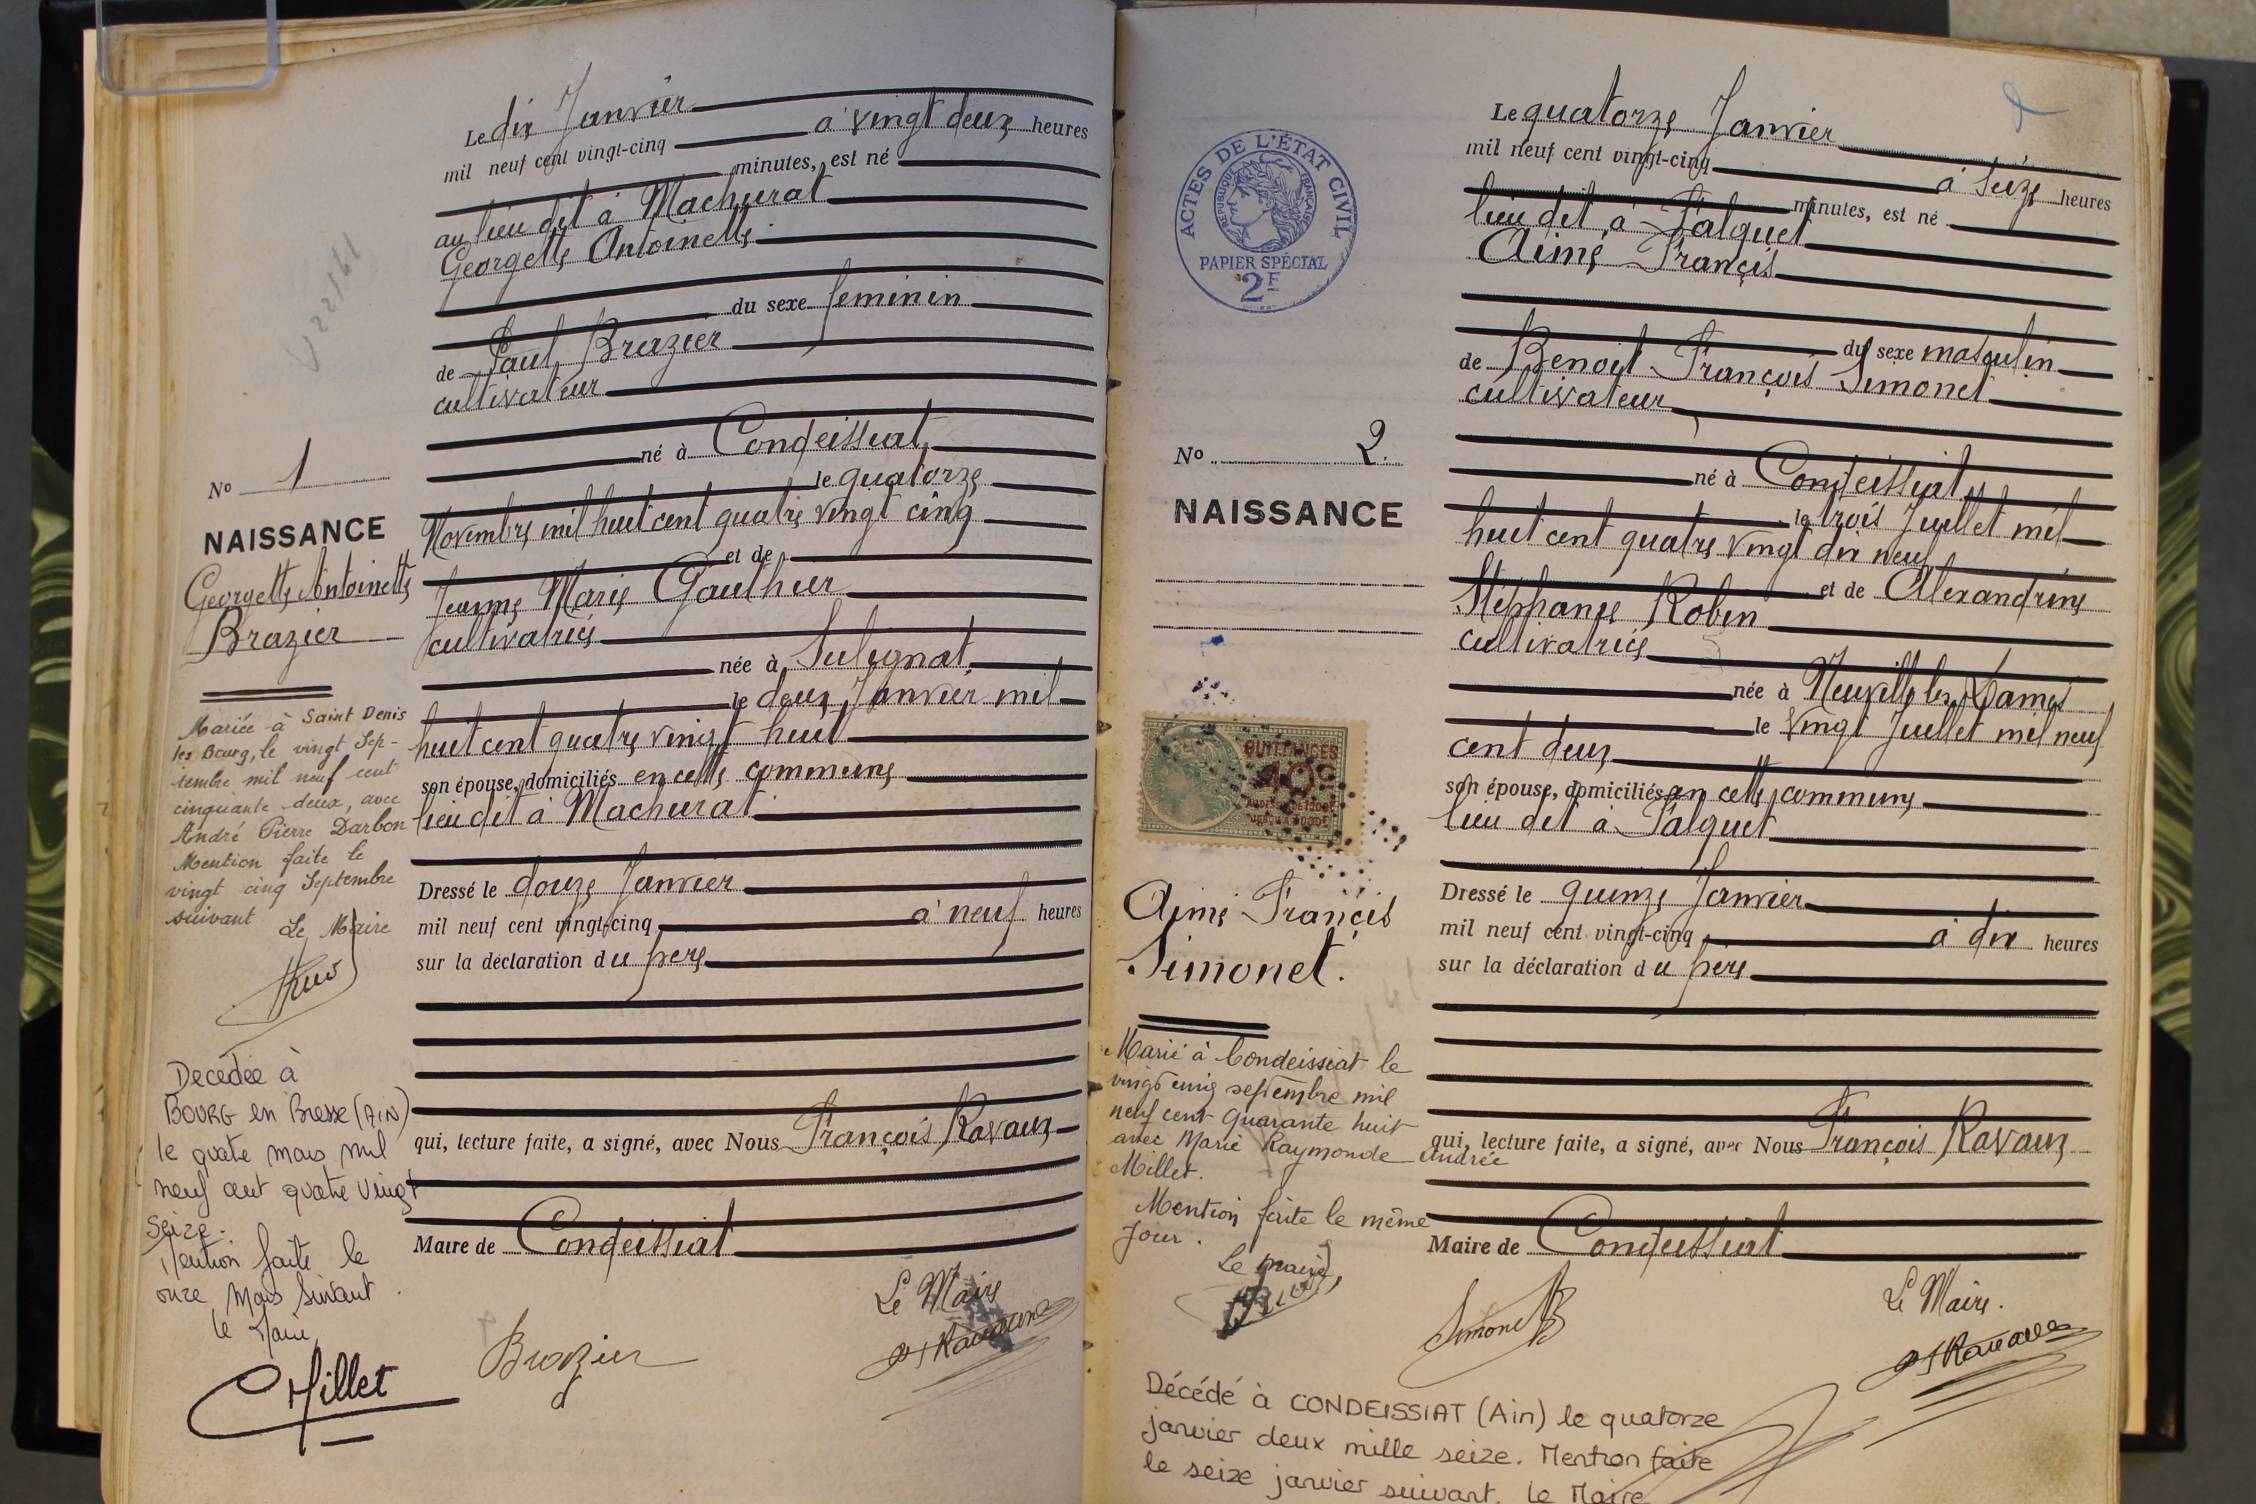 Le dix Janvier
mil neuf cent vingt-cinq à vingt deux heures
minutes, est né
au lieu dit à Machurat
Georgette Antoinette
du sexe feminin
de Paul Brazier
cultivateur
né à Condeissiat
le quatorze
Novembre mil huit cent quatre vingt cinq
et de
Jeanne Marie Gauthier
cultivatrice
née à Sulignat
le deux Janvier mil
huit cent quatre vingt huit
son épouse, domiciliés en cette commune
lieu dit à Machurat
Dressé le douze Janvier
mil neuf cent vingt-cinq à neuf heures
sur la déclaration du père
qui, lecture faite, a signé, avec Nous François Ravaux
Maire de Condeissiat
Le Maire
Brazier
Ravaux
No 1
NAISSANCE
Georgette Antoinette
Brazier
Mariée à Saint Denis
les Bourg, le vingt Sep-
tembre mil neuf cent
cinquante-deux, avec
André Pierre Darbon
Mention faite le
vingt cinq Septembre
suivant Le Maire
Decédée à
BOURG en Bresse (AIN)
le quatre mars mil
neuf cent quatre vingt
seize.
Mention faite le
onze Mars Suivant.
le Maire
Millet
ACTES DE L'ÉTAT CIVIL
RÉPUBLIQUE FRANÇAISE
PAPIER SPÉCIAL
2F
Le quatorze Janvier
mil neuf cent vingt-cinq
à seize heures
minutes, est né
lieu dit à Palquet
Aimé Francis
du sexe masculin
de Benoit François Simonet
cultivateur
né à Condeissiat
le trois Juillet mil
huit cent quatre vingt dix neuf
et de Alexandrine
Stéphanie Robin
cultivatrice
née à Neuville les Dames
le vingt Juillet mil neuf
cent deux
son épouse, domiciliés en cette commune
lieu dit à Palquet
Dressé le quinze Janvier
mil neuf cent vingt-cinq à dix heures
sur la déclaration du père
qui, lecture faite, a signé, avec Nous François Ravaux
Maire de Condeissiat
Le Maire.
Simonet
Ravaux
No 2.
NAISSANCE
QUITTANCES
40c
Aimé Francis
Simonet.
Marié à Condeissiat le
vingt cinq septembre mil
neuf cent quarante huit
avec Marie Raymonde Andrée
Millet.
Mention faite le même
jour.
Le maire,
Décédé à CONDEISSIAT (Ain) le quatorze
janvier deux mille seize. Mention faite
le seize janvier suivant. Le Maire